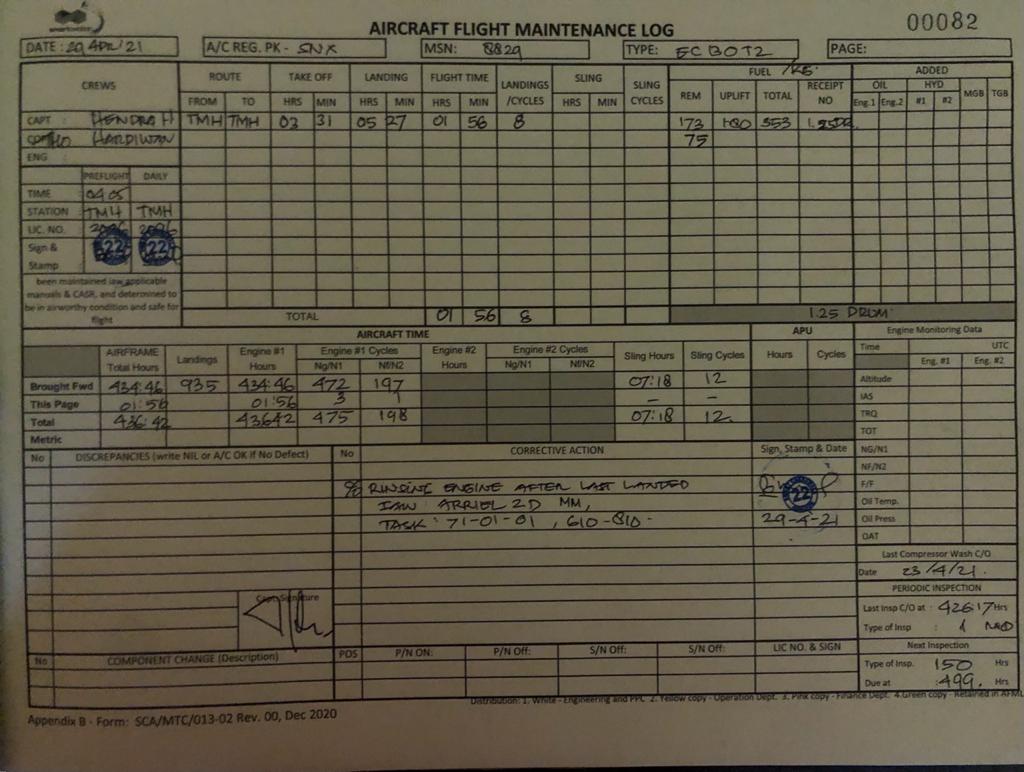 smartaviation
AIRCRAFT FLIGHT MAINTENANCE LOG
00082
DATE : 29 APR '21 A/C REG. PK - SNX MSN: 8829 TYPE: EC130T2 PAGE:
CREWS ROUTE TAKE OFF LANDING FLIGHT TIME LANDINGS /CYCLES SLING SLING CYCLES FUEL /KG ADDED
OIL HYD MGB TGB
FROM TO HRS MIN HRS MIN HRS MIN HRS MIN REM UPLIFT TOTAL RECEIPT NO Eng.1 Eng.2 #1 #2
CAPT : HENDRA H TMH TMH 03 31 05 27 01 56 8 173 180 353
HARDIWAN 75
ENG
PREFLIGHT DAILY
TIME : 04.05
STATION : TMH TMH
LIC. NO. : 2096 2096
Sign & Stamp 22 22
been maintained iaw applicable
manuals & CASR, and determined to
be in airworthy condition and safe for
flight
TOTAL 01 56 8 1.25 DRUM
AIRCRAFT TIME APU Engine Monitoring Data
AIRFRAME Total Hours Landings Engine #1 Hours Engine #1 Cycles Ng/N1 Nf/N2 Engine #2 Hours Engine #2 Cycles Ng/N1 Nf/N2 Sling Hours Sling Cycles Hours Cycles
Time : UTC
Eng. #1 Eng. #2
Brought Fwd 434:46 935 434:46 472 197 07:18 12
This Page 01:56 01:56 3 1 - -
Total 436:42 43642 475 198 07:18 12
Metric
Altitude
IAS
TRQ
TOT
NG/N1
NF/N2
F/F
Oil Temp.
Oil Press
OAT
No DISCREPANCIES (write NIL or A/C OK if No Defect) No CORRECTIVE ACTION Sign, Stamp & Date
RINSING ENGINE AFTER LAST LANDED
IAW ARRIEL 2D MM, 22
TASK : 71-01-01 , 610-810. 29-4-21
Capt. Signature
Last Compressor Wash C/O
Date 23/4/21.
PERIODIC INSPECTION
Last Insp C/O at : 426:17 Hrs
Type of Insp :
Next Inspection
Type of Insp. : 150 Hrs
Due at : 499. Hrs
No COMPONENT CHANGE (Description) POS P/N ON: P/N Off: S/N Off: S/N Off: LIC NO. & SIGN
Distribution: 1. White - Engineering and PPC 2. Yellow copy - Operation Dept. 3. Pink copy - Finance Dept. 4.Green copy - Retained in AFML
Appendix B - Form: SCA/MTC/013-02 Rev. 00, Dec 2020